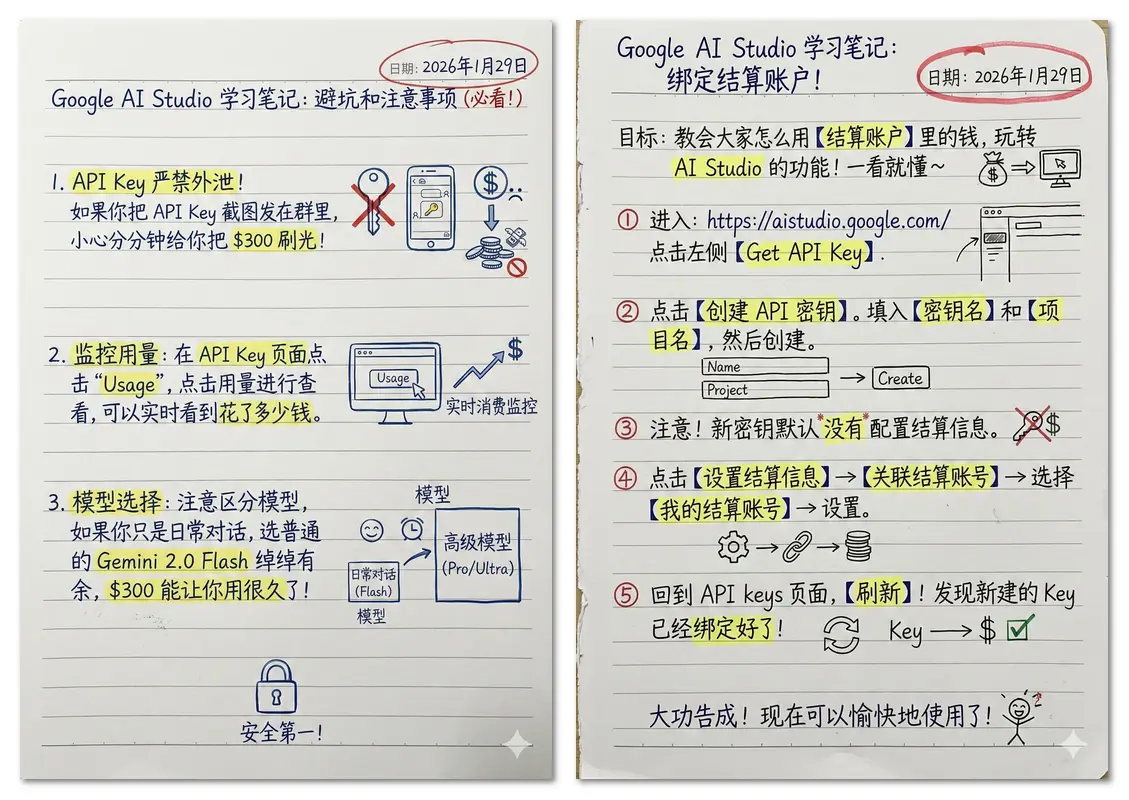 日期: 2026年1月29日
Google AI Studio 学习笔记: 避坑和注意事项 (必看!)
1. API Key 严禁外泄!
如果你把 API Key 截图发在群里,
小心分分钟给你把 $300 刷光!
$
2. 监控用量: 在 API Key 页面点
击“Usage”, 点击用量进行查
看, 可以实时看到花了多少钱。
Usage
$
实时消费监控
3. 模型选择: 注意区分模型,
如果你只是日常对话, 选普通
的 Gemini 2.0 Flash 绰绰有
余, $300 能让你用很久了!
模型
日常对话
(Flash)
模型
高级模型
(Pro/Ultra)
安全第一!
Google AI Studio 学习笔记:
绑定结算账户!
日期: 2026年1月29日
目标: 教会大家怎么用【结算账户】里的钱, 玩转
AI Studio 的功能! 一看就懂~
$
① 进入: https://aistudio.google.com/
点击左侧【Get API Key】.
② 点击【创建 API 密钥】。填入【密钥名】和【项
目名】, 然后创建。
Name
Project
→ Create
③ 注意! 新密钥默认*没有*配置结算信息。
$
④ 点击【设置结算信息】→【关联结算账号】→ 选择
【我的结算账号】→ 设置。
⑤ 回到 API keys 页面,【刷新】! 发现新建的 Key
已经绑定好了!
Key → $
大功告成! 现在可以愉快地使用了!